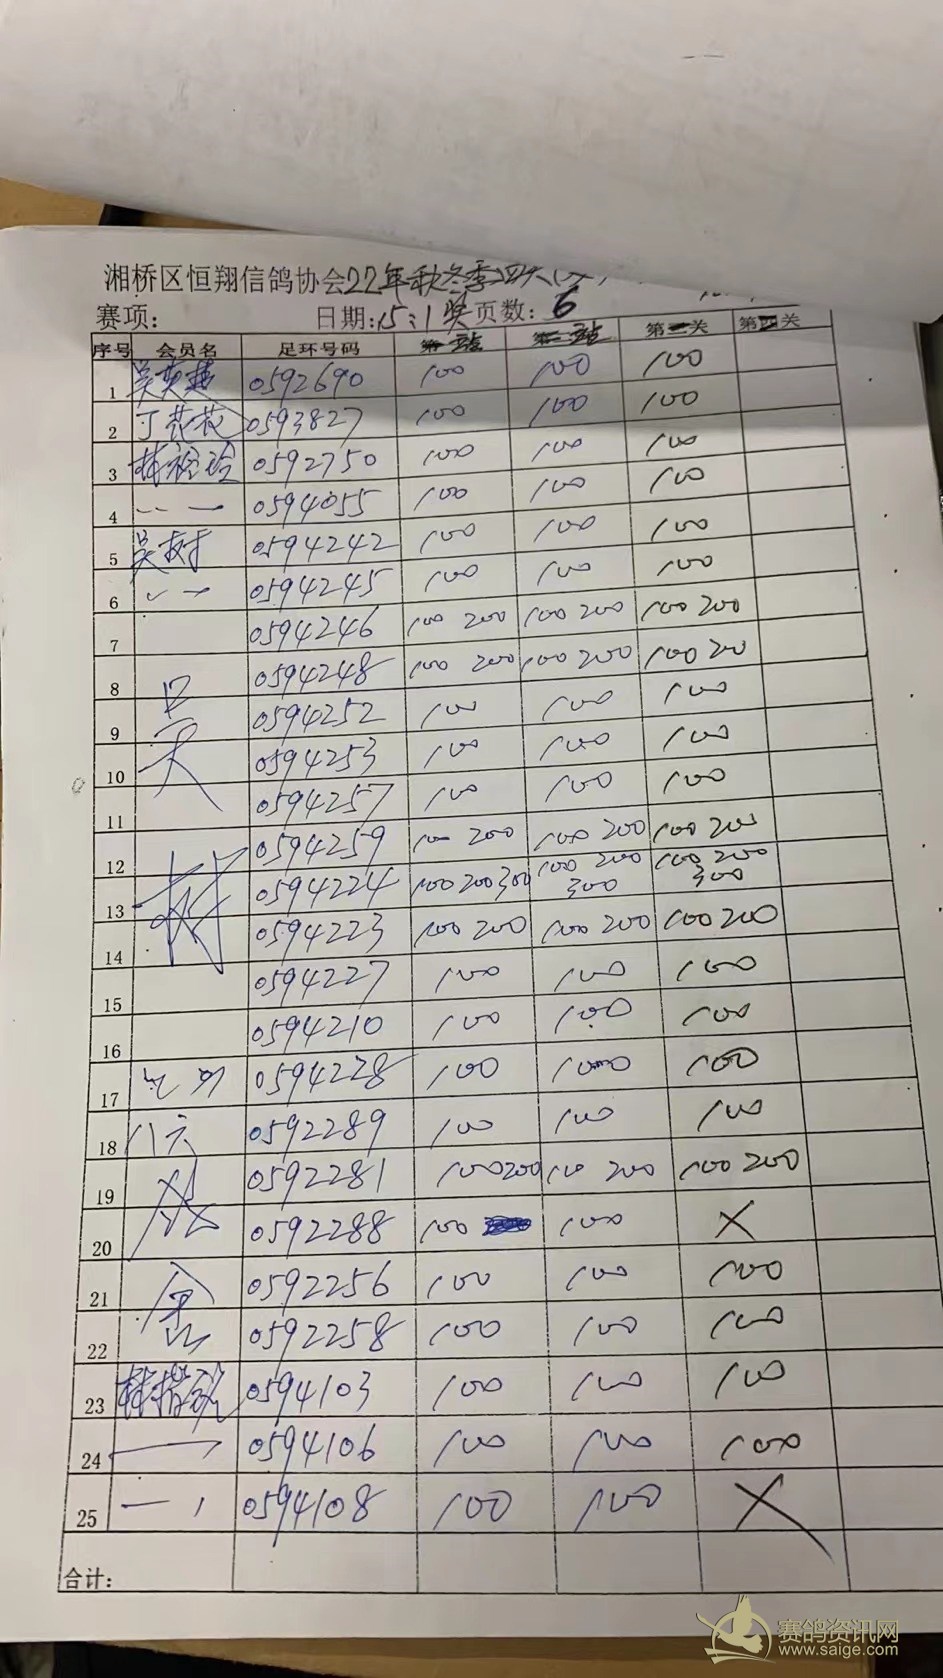 湘桥区恒翔信鸽协会22年秋冬季四关
赛项: 日期:15:1奖 页数: 6
序号 会员名 足环号码 第三关 第四关
1 0592690 100 100 100
2 0593827 100 100 100
3 0592750 100 100 100
4 0594055 100 100 100
5 吴树 0594242 100 100 100
6 0594245 100 100 100
7 0594246 100 200 100 200 100 200
8 0594248 100 200 100 200 100 200
9 0594252 100 100 100
10 0594253 100 100 100
11 0594257 100 100 100
12 0594259 100 200 100 200 100 200
13 0594224 100 200 300 100 200 300 100 200 300
14 0594223 100 200 100 200 100 200
15 0594227 100 100 100
16 0594210 100 100 100
17 0594228 100 100 100
18 八六 0592289 100 100 100
19 0592281 100 200 100 200 100 200
20 0592288 100 100 X
21 0592256 100 100 100
22 0592258 100 100 100
23 0594103 100 100 100
24 0594106 100 100 100
25 0594108 100 100 X
合计:
赛鸽资讯网
www.saige.com